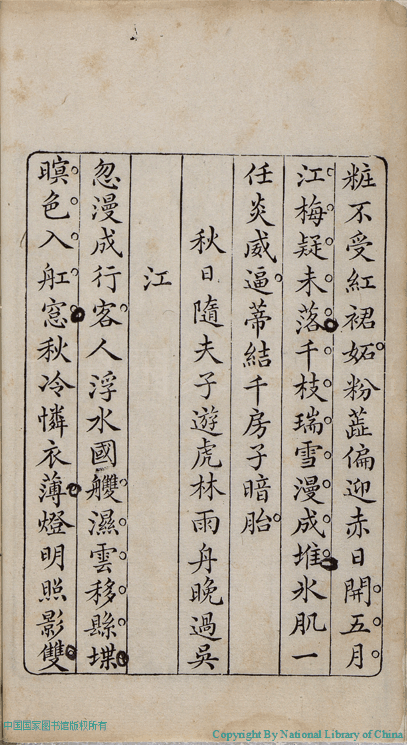 粧不受紅裙妬粉蘂偏迎赤日開五月
江梅疑未落千枝瑞雪漫成堆氷肌一
任炎威逼蒂結千房子暗胎
秋日隨夫子遊虎林雨舟晚過吳
江
忽漫成行客人浮水國艭濕雲移縣堞
暝色入舡窓秋冷憐衣薄燈明照影雙
中国国家图书馆版权所有
Copyright By National Library of China